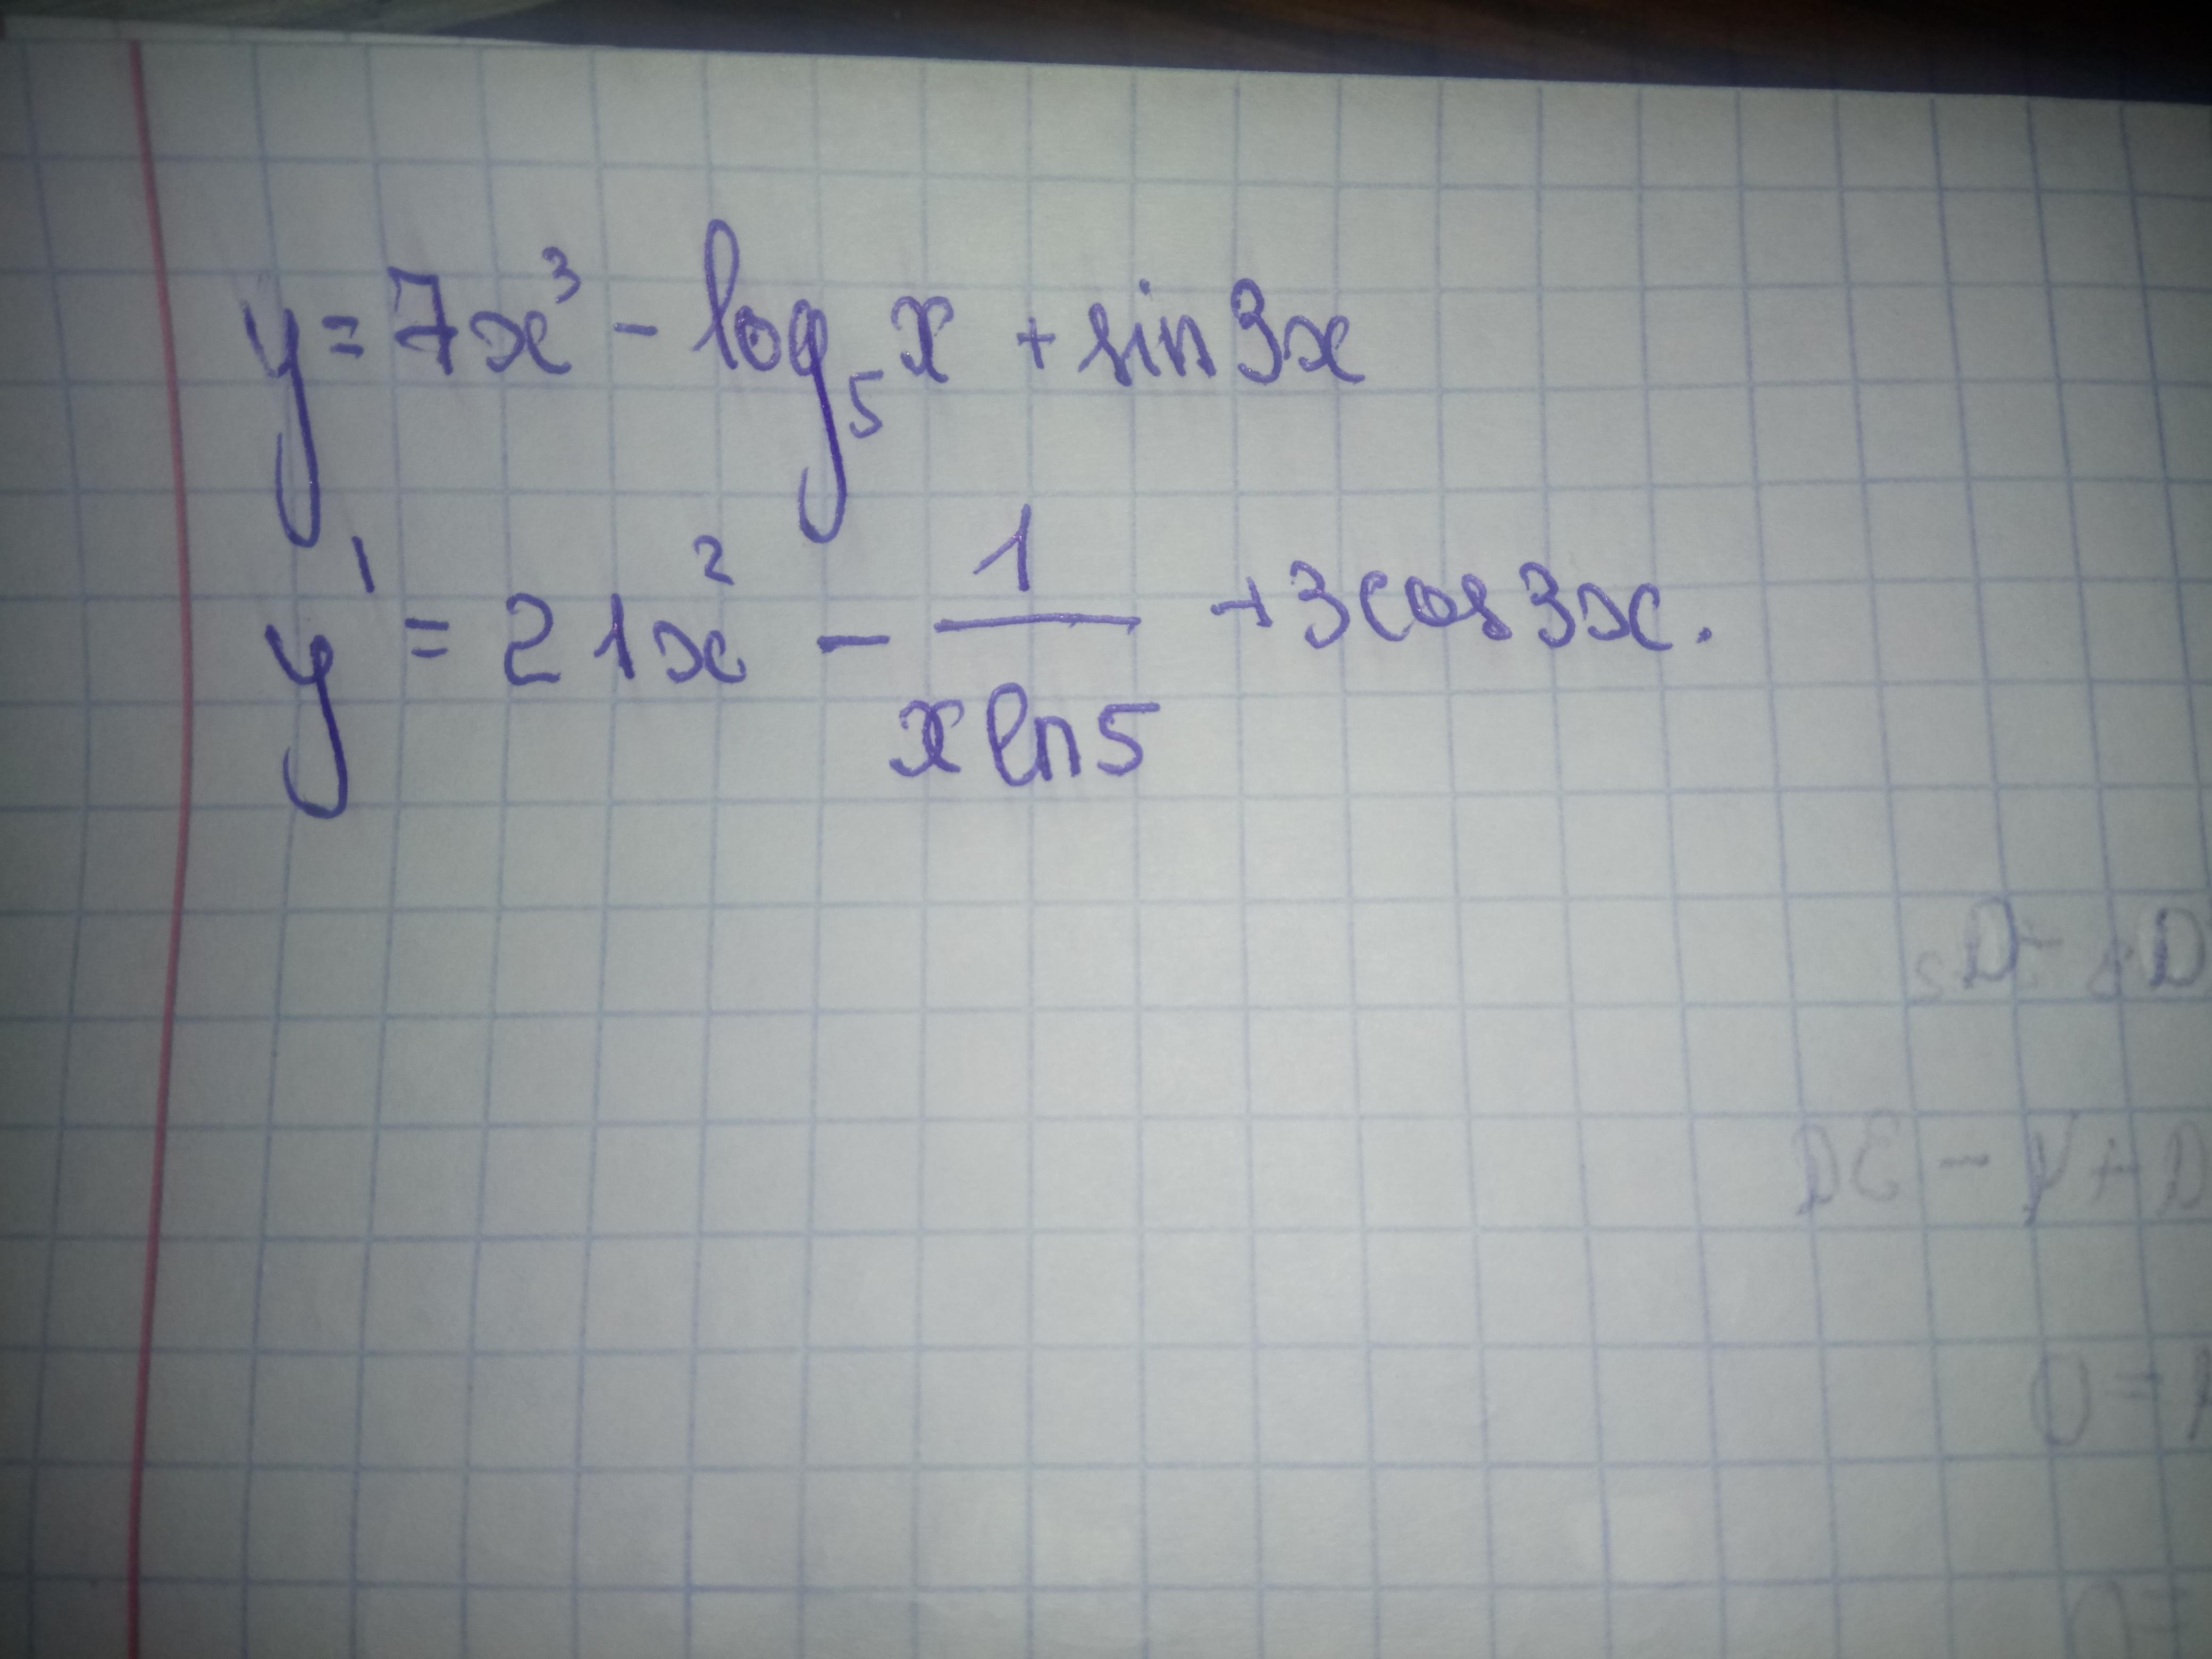 y = 7x³ - log₅x + sin3x
y' = 21x² - 1/(x ln5) + 3cos3x.